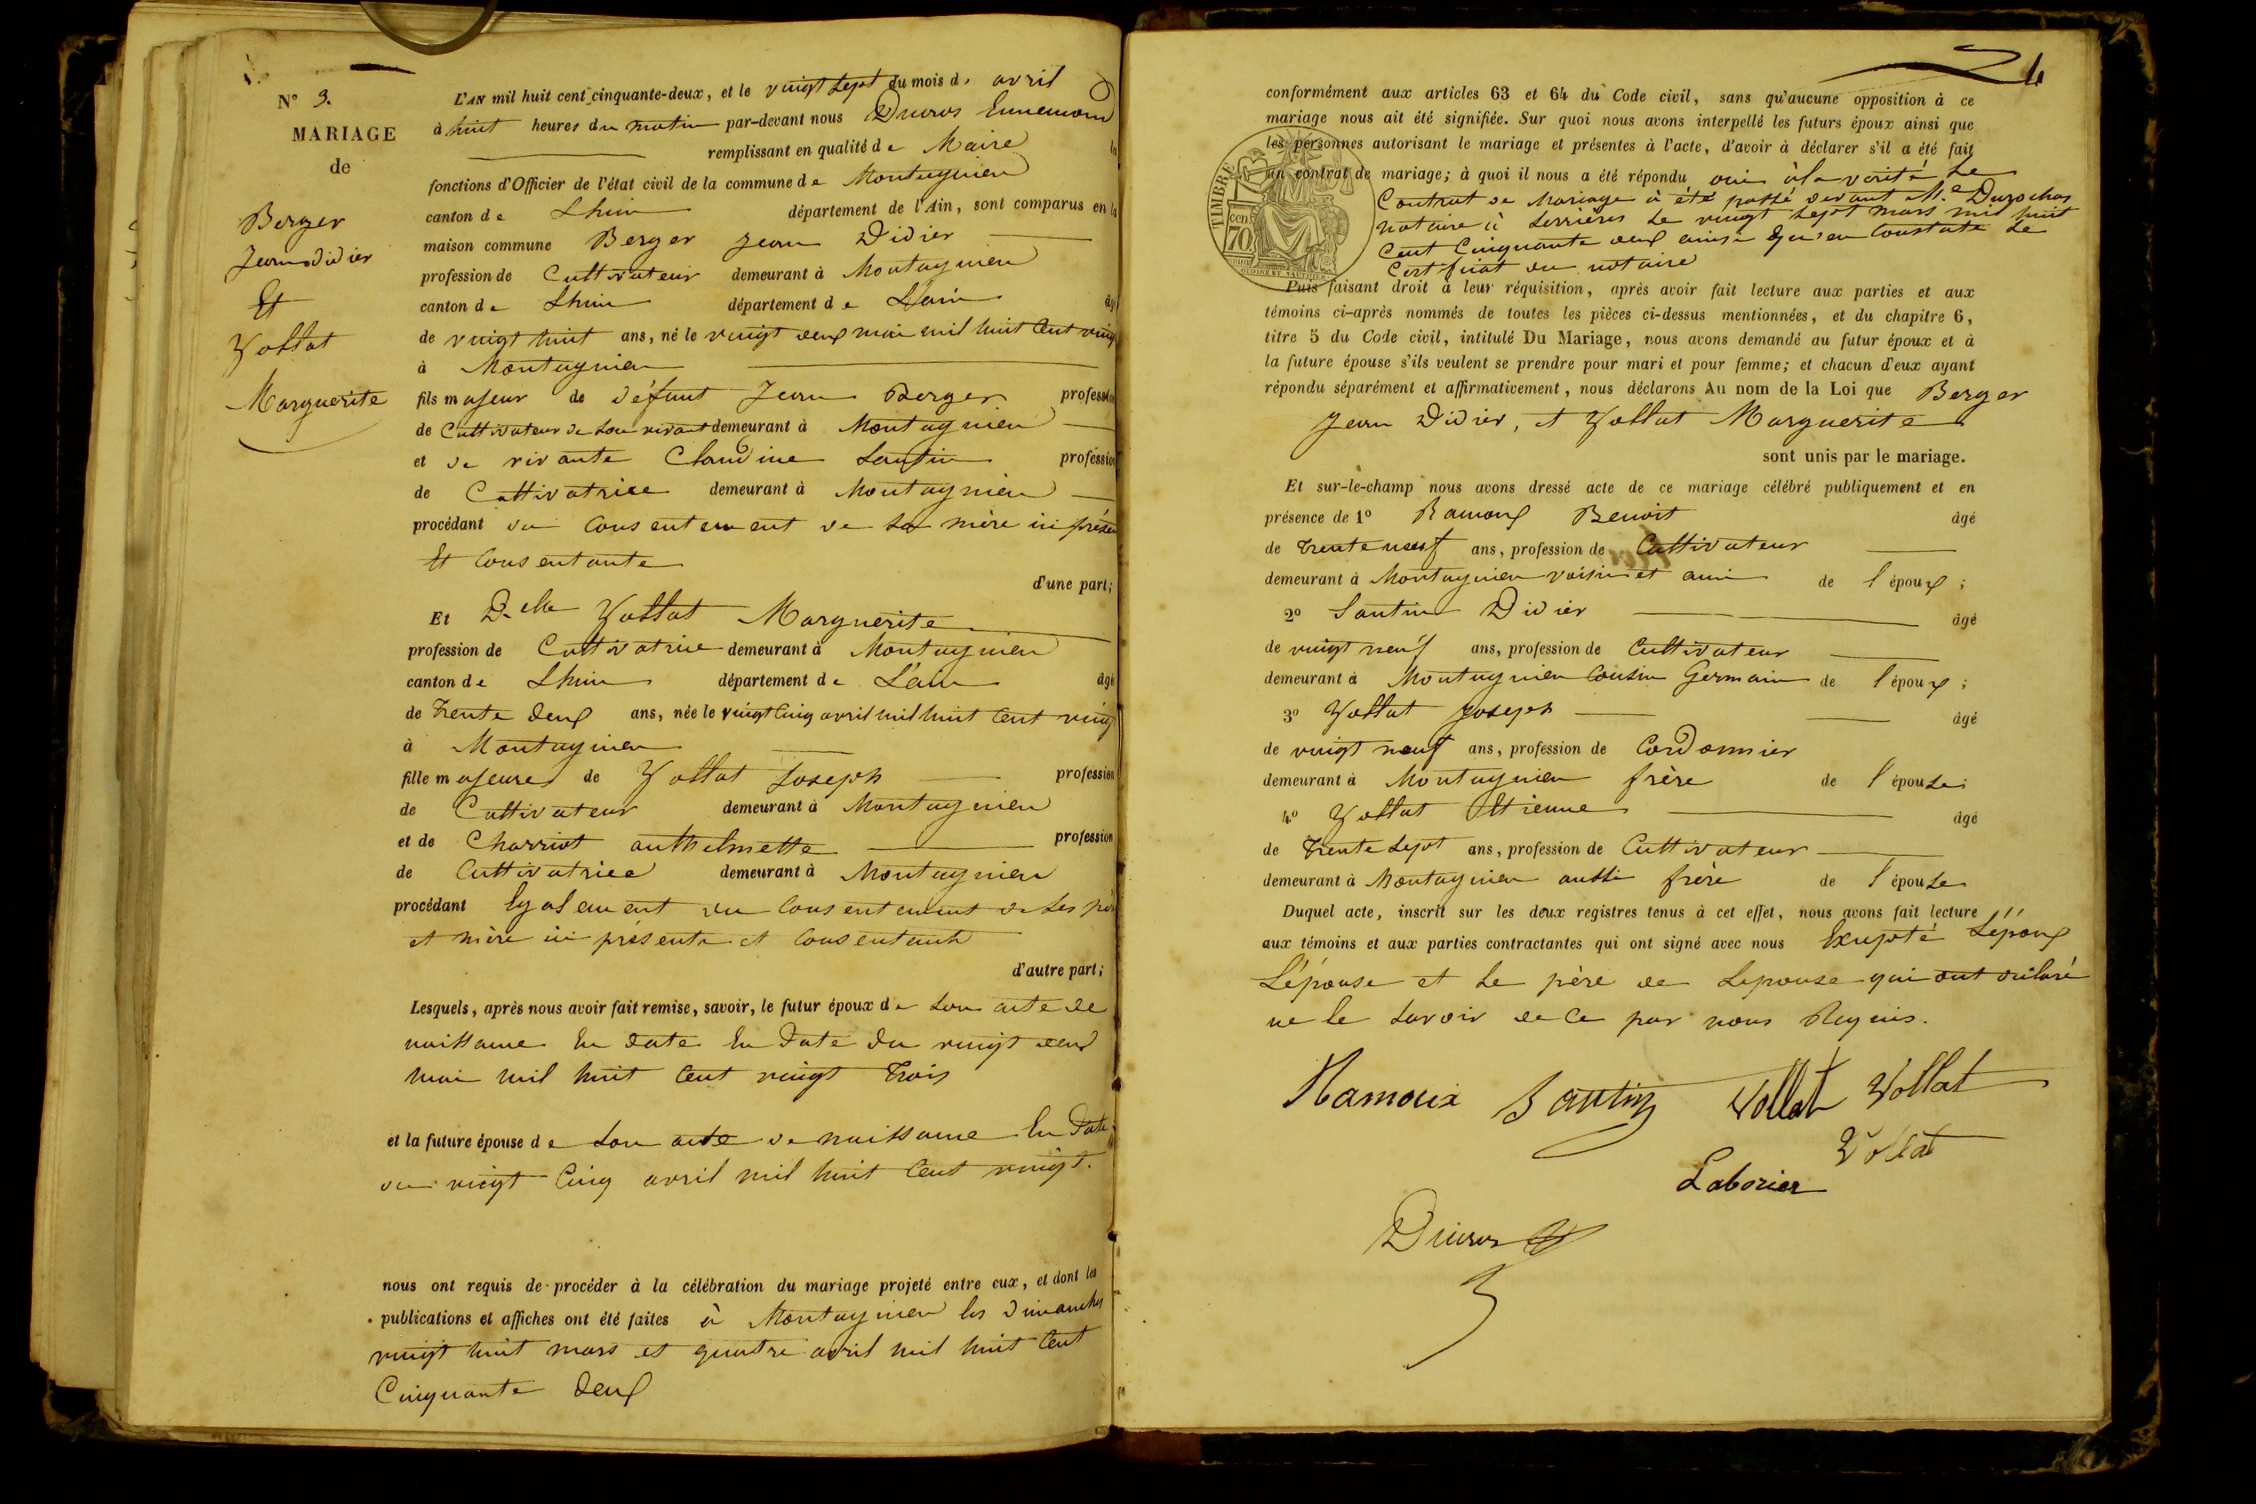 N° 3.
MARIAGE
de
Berger
Jean Didier
Et
Vollat
Marguerite
L'AN mil huit cent cinquante-deux, et le vingt sept du mois d' avril
à huit heures du matin par-devant nous Ducros Ennemond
remplissant en qualité de Maire les
fonctions d'Officier de l'état civil de la commune de Montagnieu
canton de Lhuis département de l'Ain, sont comparus en la
maison commune Berger Jean Didier
profession de Cultivateur demeurant à Montagnieu
canton de Lhuis département de L'ain âgé
de vingt huit ans, né le vingt deux mai mil huit Cent vingt
à Montagnieu
fils majeur de défunt Jean Berger profession
de Cultivateur de son vivant demeurant à Montagnieu
et de vivante Claudine Santin profession
de Cultivatrice demeurant à Montagnieu
procédant du Consentement de sa mère ici présente
Et Consentante
d'une part;
Et D.elle Vollat Marguerite
profession de Cultivatrice demeurant à Montagnieu
canton de Lhuis département de L'ain âgée
de Trente deux ans, née le vingt Cinq avril mil huit Cent vingt
à Montagnieu
fille majeure de Vollat Joseph profession
de Cultivateur demeurant à Montagnieu
et de Charriot anthelmette profession
de Cultivatrice demeurant à Montagnieu
procédant Egalement du Consentement de ses père
et mère ici présents et Consentants
d'autre part;
Lesquels, après nous avoir fait remise, savoir, le futur époux de son acte de
naissance En date En date du vingt deux
mai mil huit Cent vingt Trois
et la future épouse de son acte de naissance En date
du vingt Cinq avril mil huit Cent vingt.
nous ont requis de procéder à la célébration du mariage projeté entre eux, et dont les
publications et affiches ont été faites à Montagnieu les dimanches
vingt huit mars et quatre avril mil huit Cent
Cinquante deux
4
conformément aux articles 63 et 64 du Code civil, sans qu'aucune opposition à ce
mariage nous ait été signifiée. Sur quoi nous avons interpellé les futurs époux ainsi que
les personnes autorisant le mariage et présentes à l'acte, d'avoir à déclarer s'il a été fait
un contrat de mariage; à quoi il nous a été répondu oui à la vérité Le
Contrat de Mariage à été passé devant M.e Durochas
notaire à Serrières Le vingt sept mars mil huit
Cent Cinquante deux ainsi qu'en Constate Le
Certificat du notaire
TIMBRE
70
Puis faisant droit à leur réquisition, après avoir fait lecture aux parties et aux
témoins ci-après nommés de toutes les pièces ci-dessus mentionnées, et du chapitre 6,
titre 5 du Code civil, intitulé Du Mariage, nous avons demandé au futur époux et à
la future épouse s'ils veulent se prendre pour mari et pour femme; et chacun d'eux ayant
répondu séparément et affirmativement, nous déclarons Au nom de la Loi que Berger
Jean Didier, et Vollat Marguerite
sont unis par le mariage.
Et sur-le-champ nous avons dressé acte de ce mariage célébré publiquement et en
présence de 1° Ramoux Benoit âgé
de Trente neuf ans, profession de Cultivateur
demeurant à Montagnieu voisin et ami de l'époux;
2° Santin Didier âgé
de vingt neuf ans, profession de Cultivateur
demeurant à Montagnieu Cousin Germain de l'époux;
3° Vollat Joseph âgé
de vingt neuf ans, profession de Cordonnier
demeurant à Montagnieu frère de l'épouse;
4° Vollat Etienne âgé
de Trente sept ans, profession de Cultivateur
demeurant à Montagnieu aussi frère de l'épouse
Duquel acte, inscrit sur les deux registres tenus à cet effet, nous avons fait lecture
aux témoins et aux parties contractantes qui ont signé avec nous Excepté L'époux
L'épouse et Le père de L'épouse qui ont déclaré
ne le savoir de Ce par nous Requis.
Ramoux Santin Vollat Vollat
Vollat
Laborier
Ducros